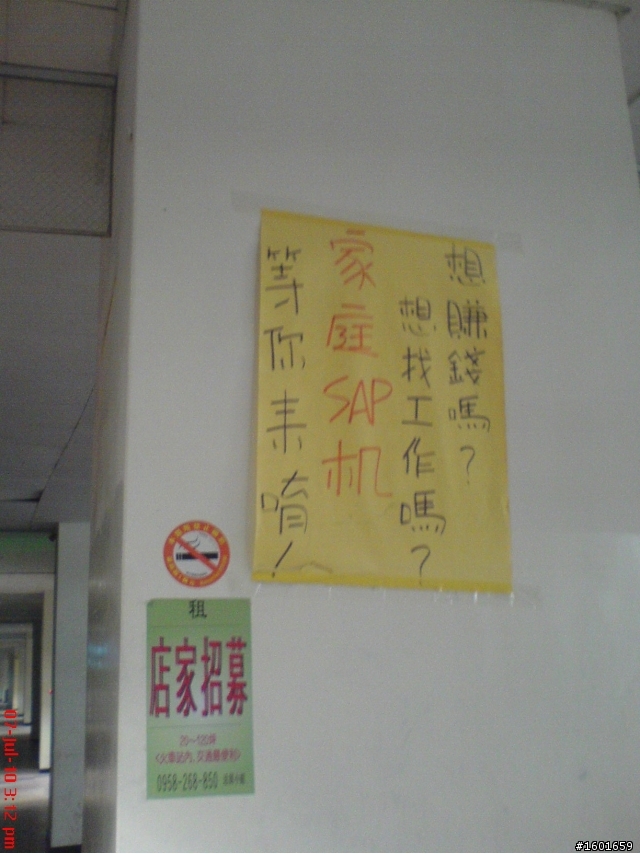 想賺錢嗎?
想找工作嗎?
家庭SAP机
等你来唷!
租
店家招募
70~120坪
<火車站內,交通最便利>
0958-268-850
07-Jul-10 3:12 pm
#1601659